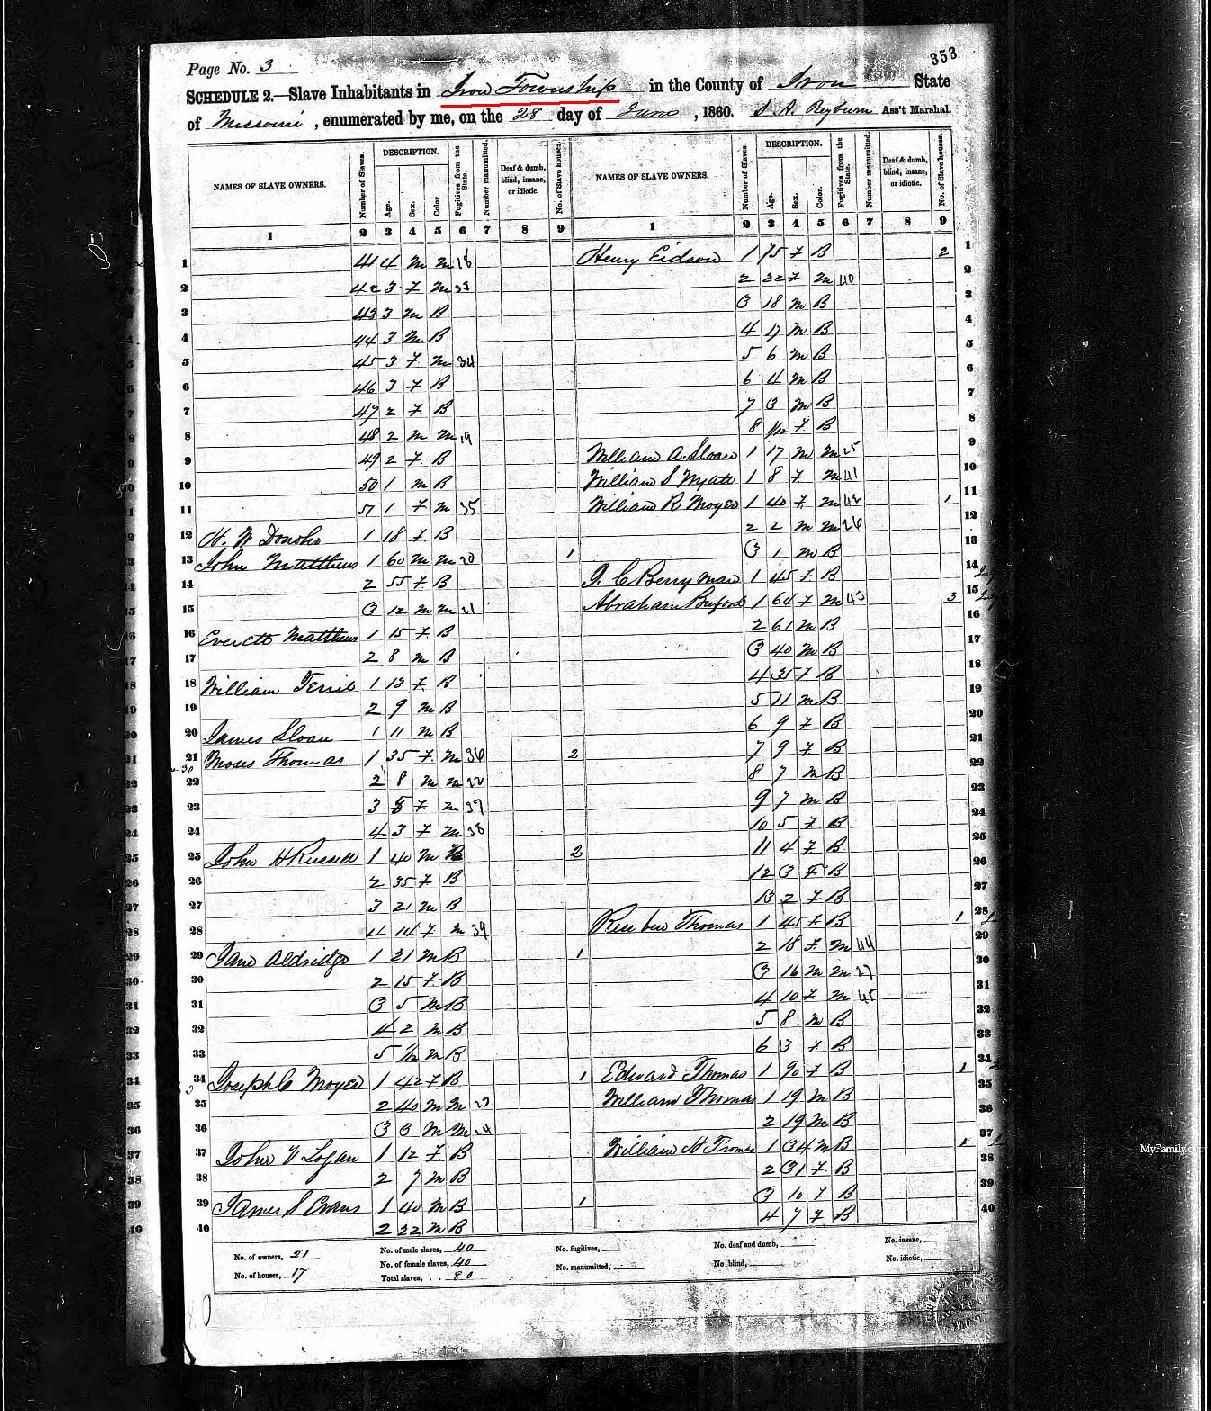 353
Page No. 3
SCHEDULE 2.—Slave Inhabitants in Iron Township in the County of Iron State
of Missouri, enumerated by me, on the 28 day of June, 1860. Ass't Marshal
NAMES OF SLAVE OWNERS. Number of Slaves. DESCRIPTION. Age. Sex. Color Fugitives from the State. Number manumitted. Deaf & dumb, blind, insane, or idiotic. No. of Slave houses. NAMES OF SLAVE OWNERS. Number of Slaves. DESCRIPTION. Age. Sex. Color. Fugitives from the State. Number manumitted. Deaf & dumb, blind, insane, or idiotic. No. of Slave houses.
1 2 3 4 5 6 7 8 9 1 2 3 4 5 6 7 8 9
1 41 4 m m 18 Henry 1 75 f B 2 1
2 42 3 f m 2 22 f m 40 2
3 43 3 m B 3 18 m B 3
4 44 3 m B 4 17 m B 4
5 45 3 f m 34 5 6 m B 5
6 46 3 f B 6 4 m B 6
7 47 2 f B 7 3 m B 7
8 48 2 m m 19 8 f B 8
9 49 2 f B William A. Sloan 1 17 m m 25 9
10 50 1 m B William S Wyatt 1 8 f m 41 10
11 51 1 f m 35 William R Moyer 1 40 f m 42 1 11
12 H. W Donoho 1 18 f B 2 2 m m 26 12
13 John Matthews 1 60 m m 20 1 3 1 m B 13
14 2 55 f B J C Berryman 1 45 f B 14
15 3 12 m m 21 Abraham Buford 1 60 f m 43 3 15
16 Everett Matthews 1 15 f B 2 61 m B 16
17 2 8 m B 3 40 m B 17
18 William 1 13 f B 4 35 f B 18
19 2 9 m B 5 11 m B 19
20 James Sloan 1 11 m B 6 9 f B 20
21 Moses Thomas 1 35 f m 36 2 7 9 f B 21
22 2 8 m m 22 8 7 m B 22
23 3 5 f m 37 9 7 m B 23
24 4 3 f m 38 10 5 f B 24
25 John H Russell 1 40 m B 2 11 4 f B 25
26 2 35 f B 12 3 f B 26
27 3 21 m B 13 2 f B 27
28 4 f m 39 Reuben Thomas 1 45 f B 1 28
29 Jane Aldridge 1 21 m B 1 2 18 f m 44 29
30 2 15 f B 3 16 m m 27 30
31 3 5 m B 4 10 f m 45 31
32 4 2 m B 5 8 m B 32
33 5 m B 6 3 f B 33
34 Joseph C Moyer 1 42 f B 1 Edward Thomas 1 f B 1 34
35 2 40 m m 23 William Thomas 1 19 m B 35
36 3 3 m m 24 2 19 m B 36
37 John V Logan 1 12 f B William H Thomas 1 34 m B 37
38 2 7 m B 2 31 f B 38
39 James S Evans 1 40 m B 1 3 10 f B 39
40 2 22 m B 4 7 f B 40
No. of owners, 21 No. of male slaves, 40 No. fugitives, No. deaf and dumb, No. insane,
No. of houses, 17 No. of female slaves, 40 No. manumitted, No. blind, No. idiotic,
Total slaves, 80
MyFamily.com